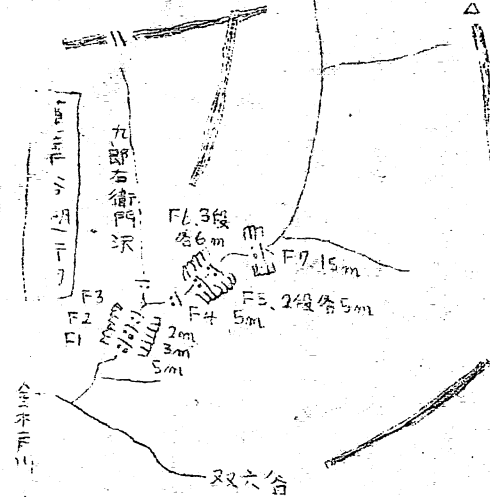 九郎右衛門沢
F6、3段
各6m
F7、15m
F5、2段各5m
F4
5m
F3
F2
F1
2m
3m
5m
金木戸川
双六谷